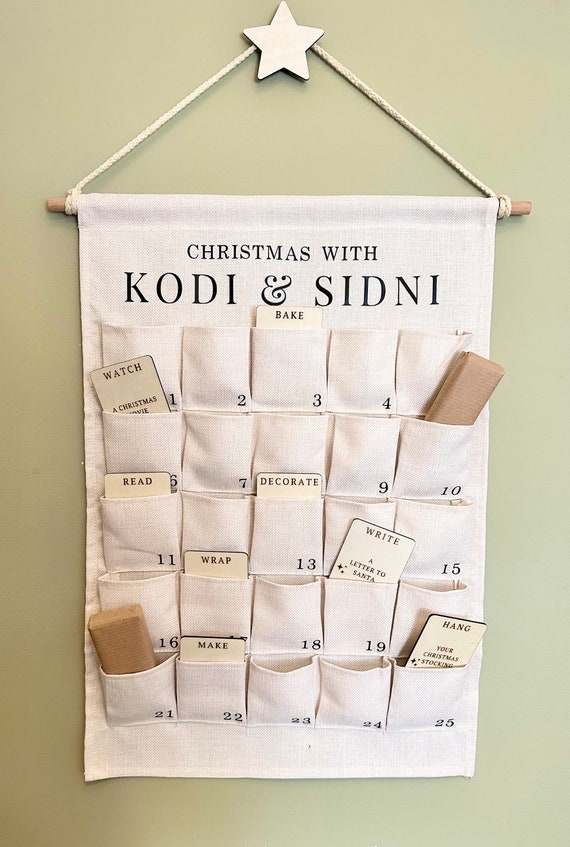 CHRISTMAS WITH
KODI & SIDNI
BAKE
1 2 3 4
WATCH
A CHRISTMAS
MOVIE
6 7 9 10
READ DECORATE
11 13 15
WRITE
A
LETTER TO
SANTA
WRAP
16 17 18 19
HANG
YOUR
CHRISTMAS
STOCKING
MAKE
21 22 23 24 25